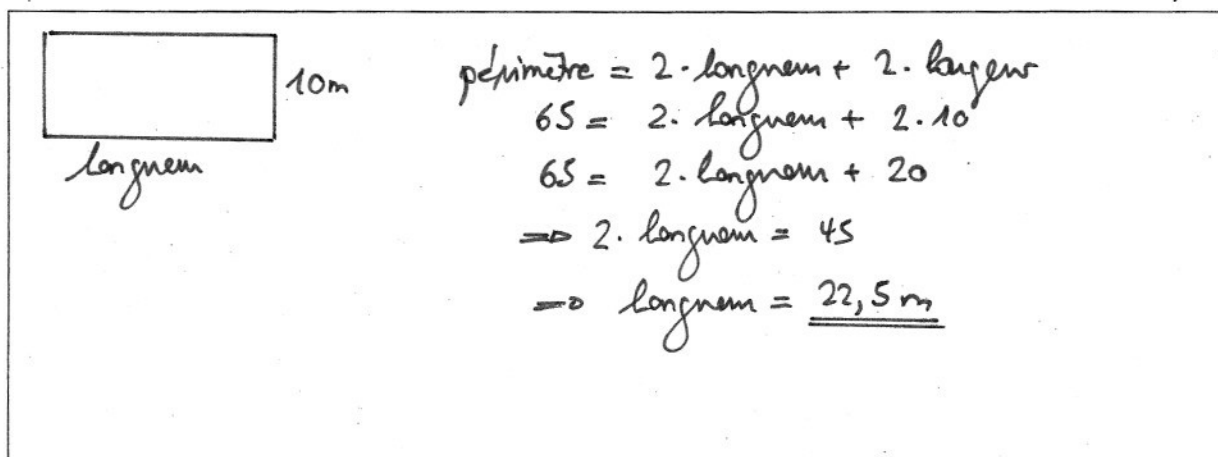 10m
longueur
périmètre = 2 · longueur + 2 · largeur
65 = 2 · longueur + 2 · 10
65 = 2 · longueur + 20
=> 2 · longueur = 45
=> longueur = 22,5 m